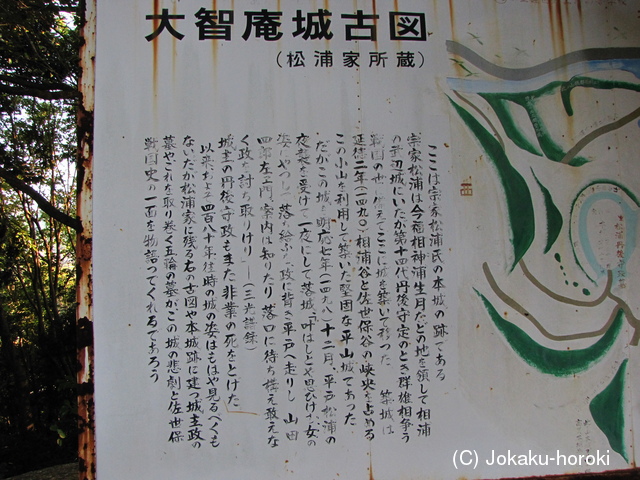 大智庵城古図
(松浦家所蔵)
ここは宗家松浦氏の本城の跡である
宗家松浦は今福相神浦生月などの地を領して相浦
の武辺城にいたが第十四代丹後守定のとき群雄相争う
戦国の世に備えてここに城を築いて移った 築城は
延徳二年(一四九〇)相浦谷と佐世保谷の峡央を占める
この小山を利用して築いた堅固な平山城であった
だがこの城も明応七年(一四九八)十二月、平戸松浦の
夜襲を受けて一夜にして落城「叶はじとや思ひけん女の
姿にやつして落給ふを政に背き平戸へ走りし 山田
四郎左エ門 案内は知りたり 落口に待ち構え敢えな
く政を討ち取りけり」(三光譜録)
城主の丹後守政もまた非業の死をとげた
以来およそ四百八十年往時の城の姿はもはや見るべくも
ないだが松浦家に残る右の古図や本城跡に建つ城主政の
墓やこれを取り巻く五輪の墓がこの城の悲劇と佐世保
戦国史の一面を物語ってくれるであろう
(C) Jokaku-horoki